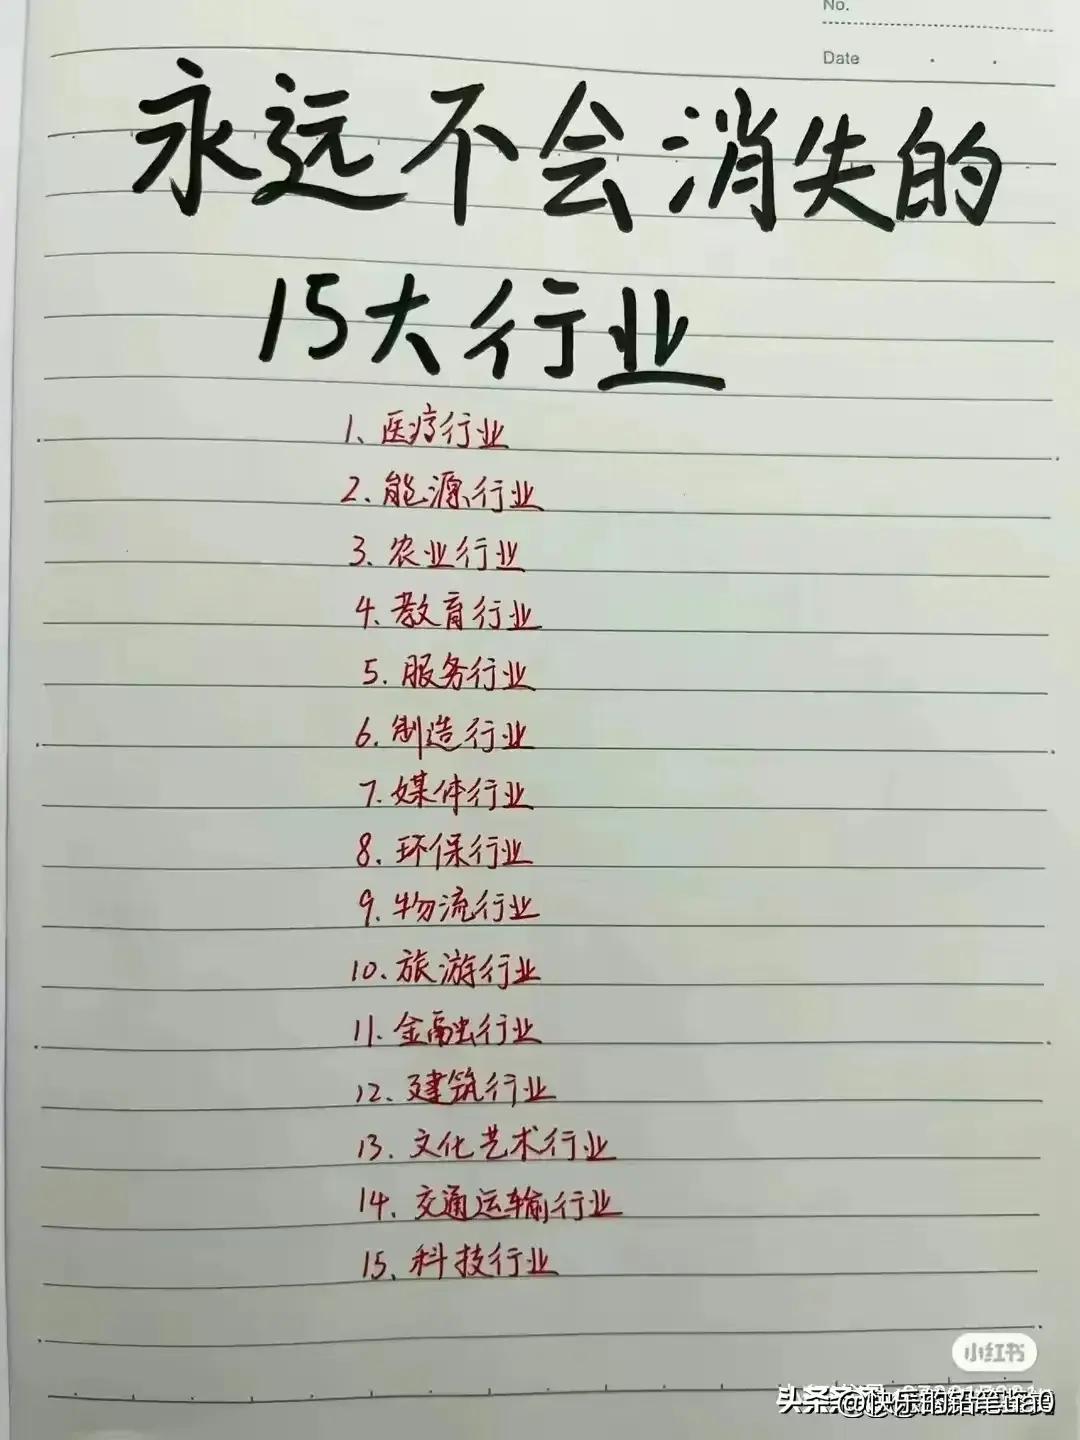 No.
Date
永远不会消失的
15大行业
1、医疗行业
2、能源行业
3、农业行业
4、教育行业
5、服务行业
6、制造行业
7、媒体行业
8、环保行业
9、物流行业
10、旅游行业
11、金融行业
12、建筑行业
13、文化艺术行业
14、交通运输行业
15、科技行业
小红书
头条 @快乐的铅笔